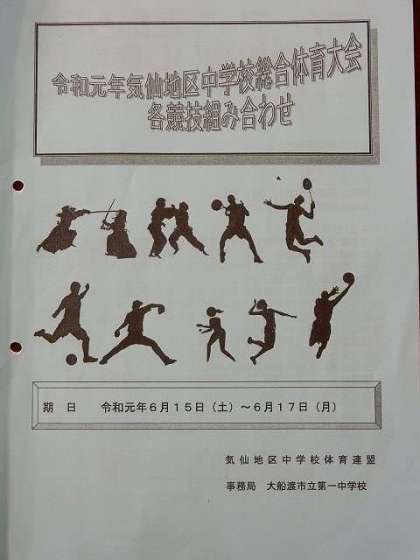 令和元年気仙地区中学校総合体育大会
各競技組み合わせ
期　日　　令和元年６月１５日（土）～６月１７日（月）
気仙地区中学校体育連盟
事務局　大船渡市立第一中学校